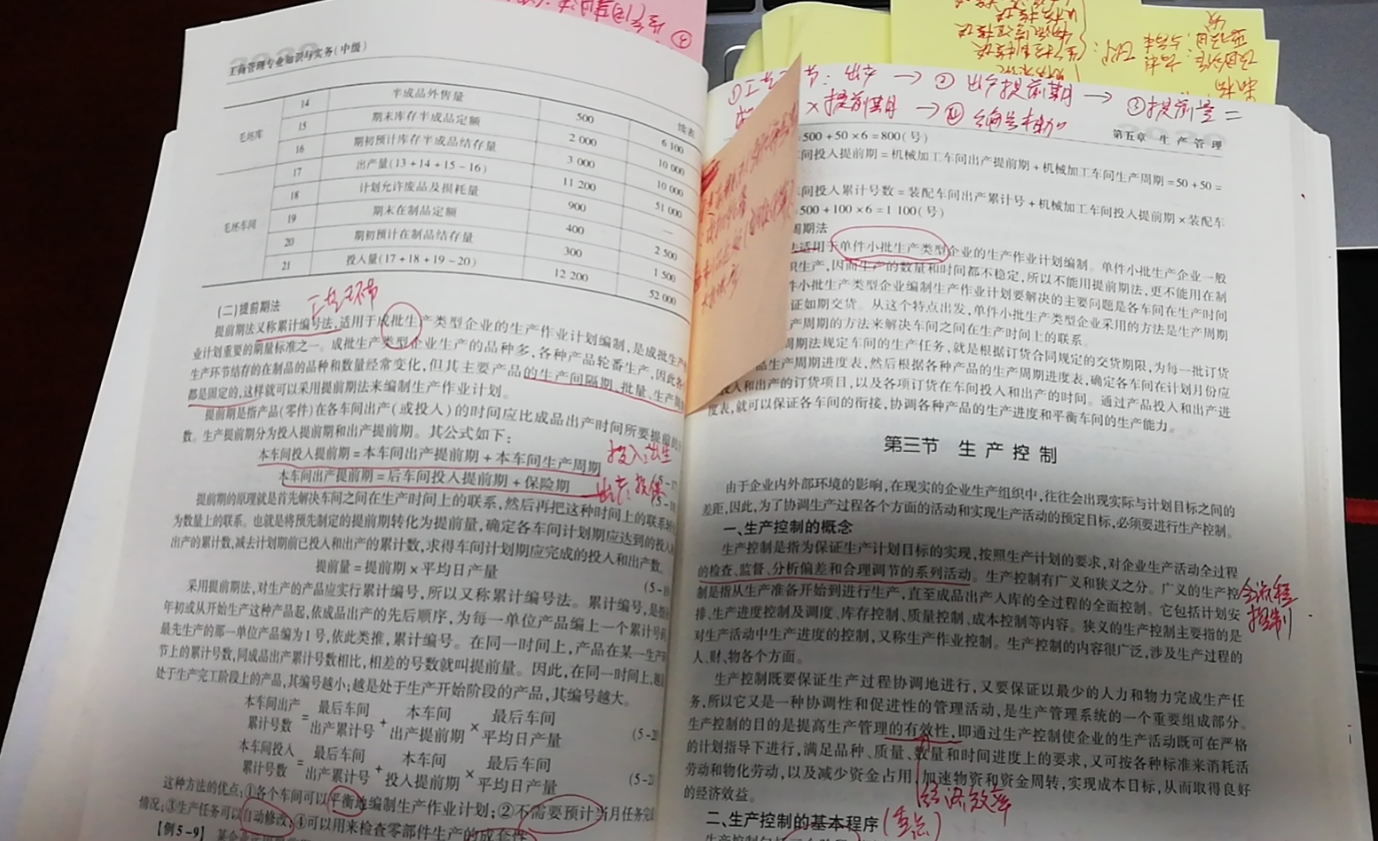 工商管理专业知识与实务(中级)
续表
毛坯库
14 半成品外售量 500 6 100
15 期末库存半成品定额 2 000 10 000
16 期初预计库存半成品结存量 3 000 10 000
毛坯车间
17 出产量(13+14+15-16) 11 200 51 000
18 计划允许废品及损耗量 900 —
19 期末在制品定额 400 2 500
20 期初预计在制品结存量 300 1 500
21 投入量(17+18+19-20) 12 200 52 000
(二)提前期法
提前期法又称累计编号法,适用于成批生产类型企业的生产作业计划编制,是成批生产
业计划重要的期量标准之一。成批生产类型企业生产的品种多,各种产品轮番生产,因此各
生产环节结存的在制品的品种和数量经常变化,但其主要产品的生产间隔期、批量、生产周
都是固定的,这样就可以采用提前期法来编制生产作业计划。
提前期是指产品(零件)在各车间出产(或投入)的时间应比成品出产时间所要提前的
数。生产提前期分为投入提前期和出产提前期。其公式如下:
本车间投入提前期=本车间出产提前期+本车间生产周期
本车间出产提前期=后车间投入提前期+保险期
提前期的原理就是首先解决车间之间在生产时间上的联系,然后再把这种时间上的联系
为数量上的联系。也就是将预先制定的提前期转化为提前量,确定各车间计划期应达到的投入
出产的累计数,减去计划期前已投入和出产的累计数,求得车间计划期应完成的投入和出产数。
提前量=提前期×平均日产量
采用提前期法,对生产的产品应实行累计编号,所以又称累计编号法。累计编号,是指
年初或从开始生产这种产品起,依成品出产的先后顺序,为每一单位产品编上一个累计号
最先生产的那一单位产品编为1号,依此类推,累计编号。在同一时间上,产品在某一生产
节上的累计号数,同成品出产累计号数相比,相差的号数就叫提前量。因此,在同一时间上,越
处于生产完工阶段上的产品,其编号越小;越是处于生产开始阶段的产品,其编号越大。
本车间出产累计号数=最后车间出产累计号+本车间出产提前期×最后车间平均日产量
本车间投入累计号数=最后车间出产累计号+本车间投入提前期×最后车间平均日产量
这种方法的优点:①各个车间可以平衡地编制生产作业计划;②不需要预计当月任务完
情况;③生产任务可以自动修改;④可以用来检查零部件生产的成套性。
【例5-9】
投入:出生
出产:投保
出产 → ② 出产提前期 → ③提前量=
×提前期 → ④ 编号相加
第五章 生产管理
500+50×6=800(号)
间投入提前期=机械加工车间出产提前期+机械加工车间生产周期=50+50=
间投入累计号数=装配车间出产累计号+机械加工车间投入提前期×装配车
500+100×6=1 100(号)
周期法
适用于单件小批生产类型企业的生产作业计划编制。单件小批生产企业一般
生产,因而生产的数量和时间都不稳定,所以不能用提前期法,更不能用在制
件小批生产类型企业编制生产作业计划要解决的主要问题是各车间在生产时间
证如期交货。从这个特点出发,单件小批生产类型企业采用的方法是生产周期
产周期的方法来解决车间之间在生产时间上的联系。
周期法规定车间的生产任务,就是根据订货合同规定的交货期限,为每一批订货
品生产周期进度表,然后根据各种产品的生产周期进度表,确定各车间在计划月份应
投入和出产的订货项目,以及各项订货在车间投入和出产的时间。通过产品投入和出产进
度表,就可以保证各车间的衔接,协调各种产品的生产进度和平衡车间的生产能力。
第三节 生产控制
由于企业内外部环境的影响,在现实的企业生产组织中,往往会出现实际与计划目标之间的
差距,因此,为了协调生产过程各个方面的活动和实现生产活动的预定目标,必须要进行生产控制。
一、生产控制的概念
生产控制是指为保证生产计划目标的实现,按照生产计划的要求,对企业生产活动全过程
的检查、监督、分析偏差和合理调节的系列活动。生产控制有广义和狭义之分。广义的生产控
制是指从生产准备开始到进行生产,直至成品出产入库的全过程的全面控制。它包括计划安
排、生产进度控制及调度、库存控制、质量控制、成本控制等内容。狭义的生产控制主要指的是
对生产活动中生产进度的控制,又称生产作业控制。生产控制的内容很广泛,涉及生产过程的
人、财、物各个方面。
全流程
控制
生产控制既要保证生产过程协调地进行,又要保证以最少的人力和物力完成生产任
务,所以它又是一种协调性和促进性的管理活动,是生产管理系统的一个重要组成部分。
生产控制的目的是提高生产管理的有效性,即通过生产控制使企业的生产活动既可在严格
的计划指导下进行,满足品种、质量、数量和时间进度上的要求,又可按各种标准来消耗活
劳动和物化劳动,以及减少资金占用,加速物资和资金周转,实现成本目标,从而取得良好
的经济效益。
经济效率
二、生产控制的基本程序(重点)